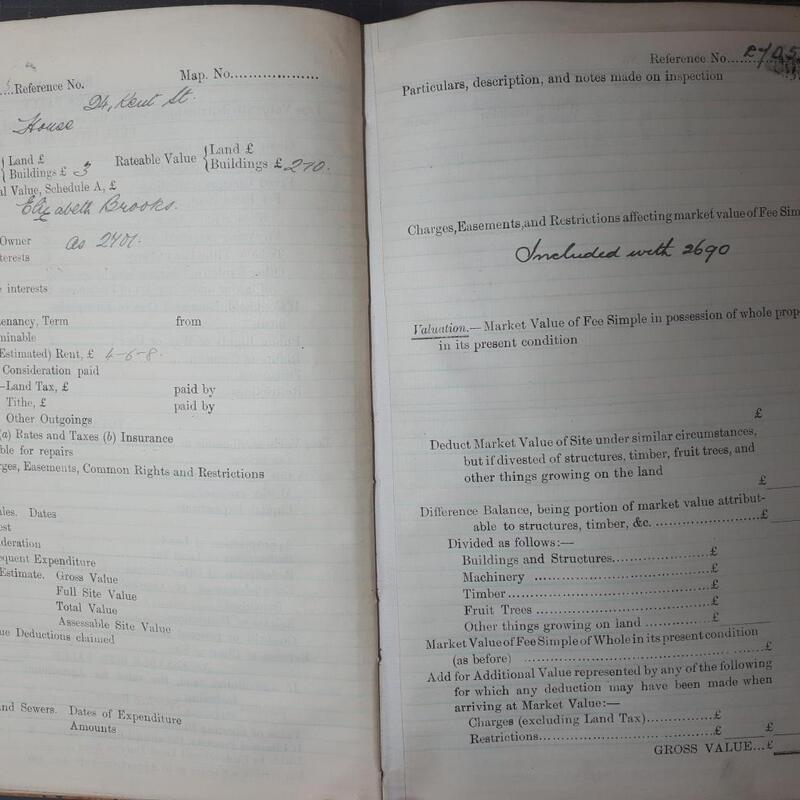 Reference No.
Map. No...................
24, Kent St.
House
Land £
Buildings £ 3
Rateable Value
Land £
Buildings £ 270.
al Value, Schedule A, £
Elizabeth Brooks.
Owner as 2401.
terests
interests
enancy, Term from
minable
Estimated) Rent, £ 4-6-8.
Consideration paid
—Land Tax, £ paid by
Tithe, £ paid by
Other Outgoings
(a) Rates and Taxes (b) Insurance
ble for repairs
rges, Easements, Common Rights and Restrictions
ales. Dates
est
ideration
equent Expenditure
Estimate. Gross Value
Full Site Value
Total Value
Assessable Site Value
ue Deductions claimed
nd Sewers. Dates of Expenditure
Amounts
Reference No........2705
Particulars, description, and notes made on inspection
Charges, Easements, and Restrictions affecting market value of Fee Sim
Included with 2690
Valuation.—Market Value of Fee Simple in possession of whole prop
in its present condition
£
Deduct Market Value of Site under similar circumstances,
but if divested of structures, timber, fruit trees, and
other things growing on the land
£
Difference Balance, being portion of market value attribut-
able to structures, timber, &c. .....................£
Divided as follows:—
Buildings and Structures..................£
Machinery ................................£
Timber....................................£
Fruit Trees ..............................£
Other things growing on land .............£
Market Value of Fee Simple of Whole in its present condition
(as before) ........................................£
Add for Additional Value represented by any of the following
for which any deduction may have been made when
arriving at Market Value:—
Charges (excluding Land Tax).............£
Restrictions.............................£ £
GROSS VALUE...£